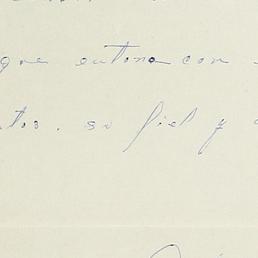 que entona con
tos. su fiel y